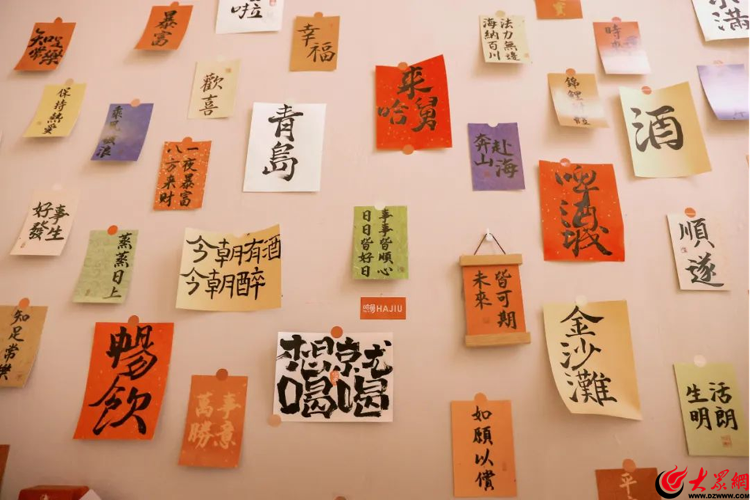 暴富
啦
幸福
法力無邊
海納百川
小滿
時來
歡喜
保持熱愛
乘風破浪
青島
來舅
哈
錦鯉
酒
一夜暴富
八方來財
奔赴
山海
啤酒城
好事
發生
蒸蒸日上
今朝有酒
今朝醉
事事皆順心
日日皆好日
未來
皆可期
順遂
哈酒HAJIU
知足常樂
暢飲
萬事
勝意
想就
喝喝
如願以償
金沙灘
生活
明朗
平
大眾網
WWW.DZWWW.COM